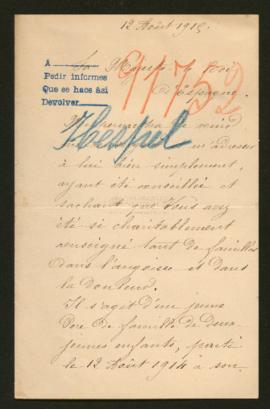 12 Août 1915.
A
Pedir informes
Que se haga así
Devolver
Sa Majesté le Roi
d'Espagne.
91752
Hespel
permettra
adresser
à lui bien simplement,
ayant été conseillée et
sachant que Vous avez
été si charitablement
renseigné tant de familles
dans l'angoisse et dans
la douleur.
Il s'agit d'un jeune
père de famille de deux
jeunes enfants, parti
le 12 Août 1914 à son